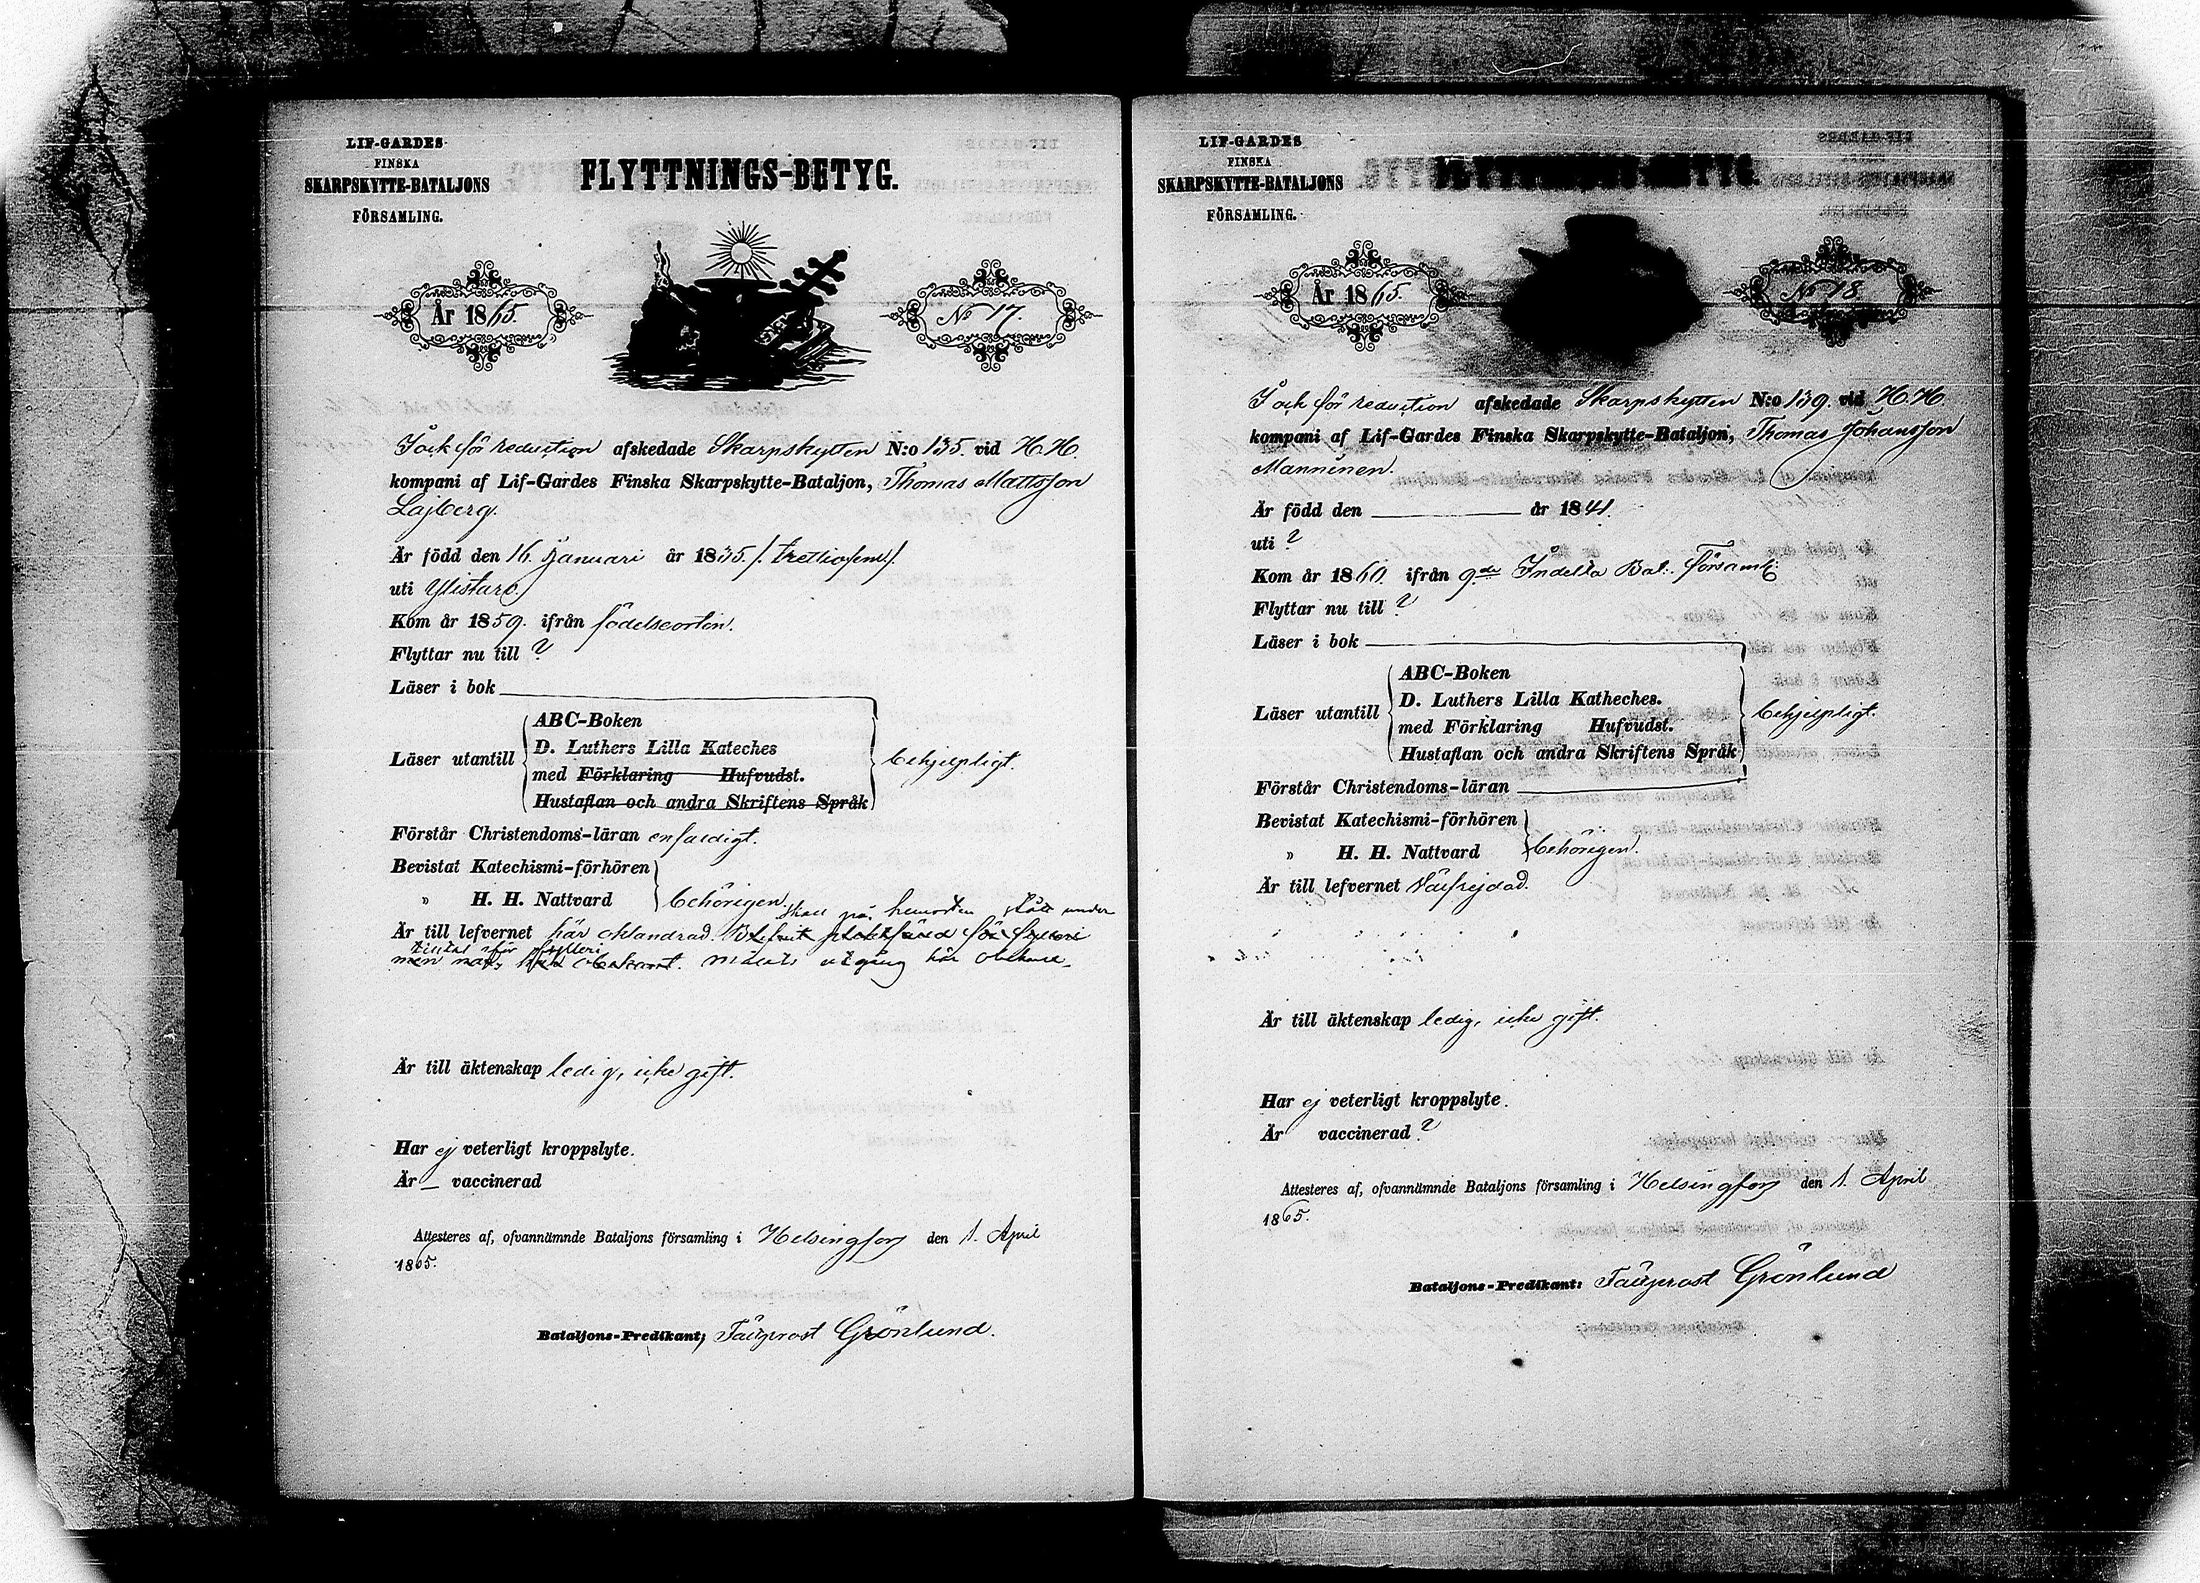 LIF-GARDES
FINSKA
SKARPSKYTTE-BATALJONS
FÖRSAMLING.
FLYTTNINGS-BETYG.
År 1865.
No 17.
I och för reduction afskedade Skarpskytten N:o 135. vid H. H.
kompani af Lif-Gardes Finska Skarpskytte-Bataljon, Thomas Mattsson
Lajberg.
Är född den 16. Januari år 1835. /: trettiofem :/.
uti Ylistaro.
Kom år 1859. ifrån födelseorten.
Flyttar nu till ?
Läser i bok
Läser utantill
ABC-Boken
D. Luthers Lilla Kateches
med Förklaring Hufvudst.
Hustaflan och andra Skriftens Språk
behjelpligt.
Förstår Christendoms-läran enfaldigt.
Bevistat Katechismi-förhören
" H. H. Nattvard
behörigen.
skall på hemorten stått under
Är till lefvernet här oklandrad. för fylleri
tilltal för fylleri
men obekant. målets utgång här
Är till äktenskap ledig, icke gift.
Har ej veterligt kroppslyte.
Är — vaccinerad
Attesteres af, ofvannämnde Bataljons församling i Helsingfors den 1. April
1865.
Bataljons-Predikant; Fältprost Grönlund.
LIF-GARDES
FINSKA
SKARPSKYTTE-BATALJONS
FÖRSAMLING.
FLYTTNINGS-BETYG.
År 1865.
No 18.
I och för reduction afskedade Skarpskytten N:o 139. vid H. H.
kompani af Lif-Gardes Finska Skarpskytte-Bataljon, Thomas Johansson
Manninen.
Är född den år 1841.
uti ?
Kom år 1860. ifrån 9de Indelta Bat: Församl:
Flyttar nu till ?
Läser i bok
Läser utantill
ABC-Boken
D. Luthers Lilla Katheches.
med Förklaring Hufvudst.
Hustaflan och andra Skriftens Språk
behjelpligt.
Förstår Christendoms-läran
Bevistat Katechismi-förhören
" H. H. Nattvard
behörigen.
Är till lefvernet välfrejdad.
Är till äktenskap ledig, icke gift.
Har ej veterligt kroppslyte.
Är vaccinerad ?
Attesteres af, ofvannämnde Bataljons församling i Helsingfors den 1. April
1865.
Bataljons-Predikant: Fältprost Grönlund